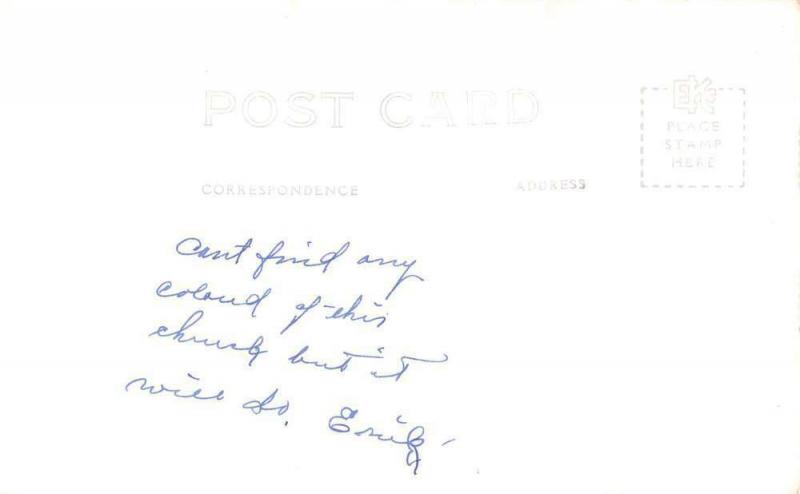 POST CARD
EKC
PLACE
STAMP
HERE
CORRESPONDENCE ADDRESS
Cant find any
colord of this
church but it
will do. Erick